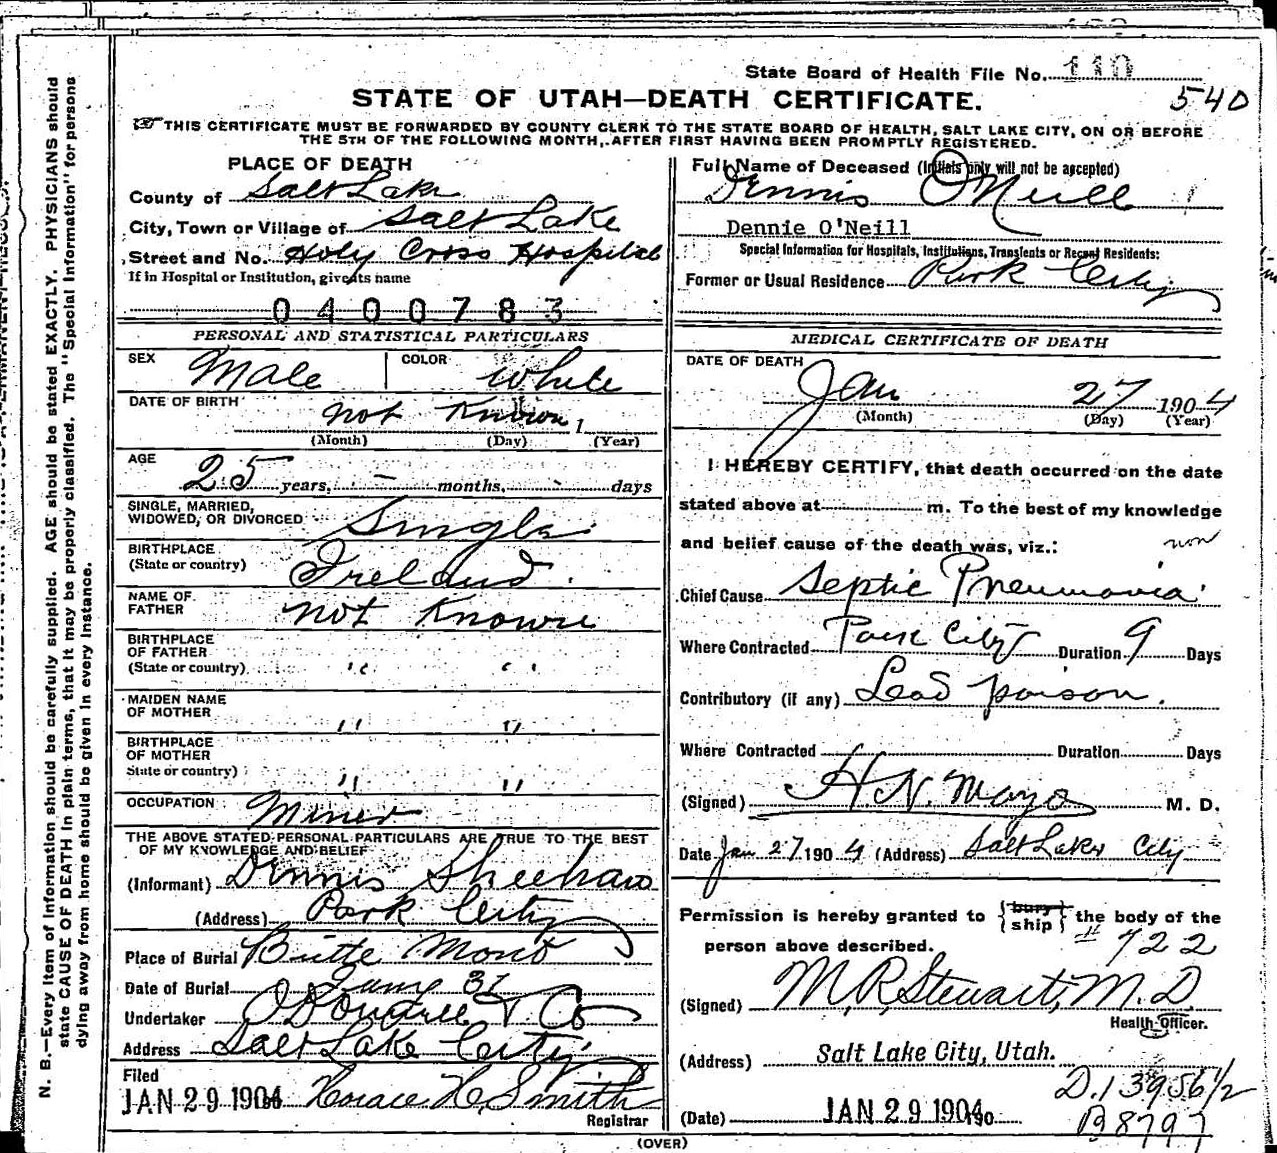 State Board of Health File No. 110
540
STATE OF UTAH—DEATH CERTIFICATE.
☞ THIS CERTIFICATE MUST BE FORWARDED BY COUNTY CLERK TO THE STATE BOARD OF HEALTH, SALT LAKE CITY, ON OR BEFORE
THE 5TH OF THE FOLLOWING MONTH, AFTER FIRST HAVING BEEN PROMPTLY REGISTERED.
N. B.—Every item of information should be carefully supplied. AGE should be stated EXACTLY. PHYSICIANS should
state CAUSE OF DEATH in plain terms, that it may be properly classified. The "Special Information" for persons
dying away from home should be given in every instance.
PLACE OF DEATH
County of Salt Lake
City, Town or Village of Salt Lake
Street and No. Holy Cross Hospital
If in Hospital or Institution, give its name
0400783
PERSONAL AND STATISTICAL PARTICULARS
SEX Male COLOR White
DATE OF BIRTH not Known 1
(Month) (Day) (Year)
AGE 25 years, - months, - days
SINGLE, MARRIED,
WIDOWED, OR DIVORCED Single
BIRTHPLACE
(State or country) Ireland
NAME OF
FATHER not Known
BIRTHPLACE
OF FATHER
(State or country) " "
MAIDEN NAME
OF MOTHER " "
BIRTHPLACE
OF MOTHER
State or country) " "
OCCUPATION Miner
THE ABOVE STATED PERSONAL PARTICULARS ARE TRUE TO THE BEST
OF MY KNOWLEDGE AND BELIEF
(Informant) Dennis Sheehan
(Address) Park City
Place of Burial Butte Mont
Date of Burial Jany 31
Undertaker O'Donnell & Co
Address Salt Lake City
Filed
JAN 29 1904 Horace H. Smith
Registrar
Full Name of Deceased (Initials only will not be accepted)
Dennis O'Neill
Dennie O'Neill
Special Information for Hospitals, Institutions, Transients or Recent Residents:
Former or Usual Residence Park City
MEDICAL CERTIFICATE OF DEATH
DATE OF DEATH
Jan 27 1904
(Month) (Day) (Year)
I HEREBY CERTIFY, that death occurred on the date
stated above at m. To the best of my knowledge
and belief cause of the death was, viz.:
Chief Cause Septic Pneumonia
Where Contracted Park City Duration 9 Days
Contributory (if any) Lead poison.
Where Contracted Duration Days
(Signed) H. N. Mayo M. D.
Date Jan 27 1904 (Address) Salt Lake City
Permission is hereby granted to {bury ship} the body of the
person above described. " 722
(Signed) M. R. Stewart, M. D.
Health Officer.
(Address) Salt Lake City, Utah.
D. 13956 1/2
(Date) JAN 29 1904 190
B 8797
(OVER)